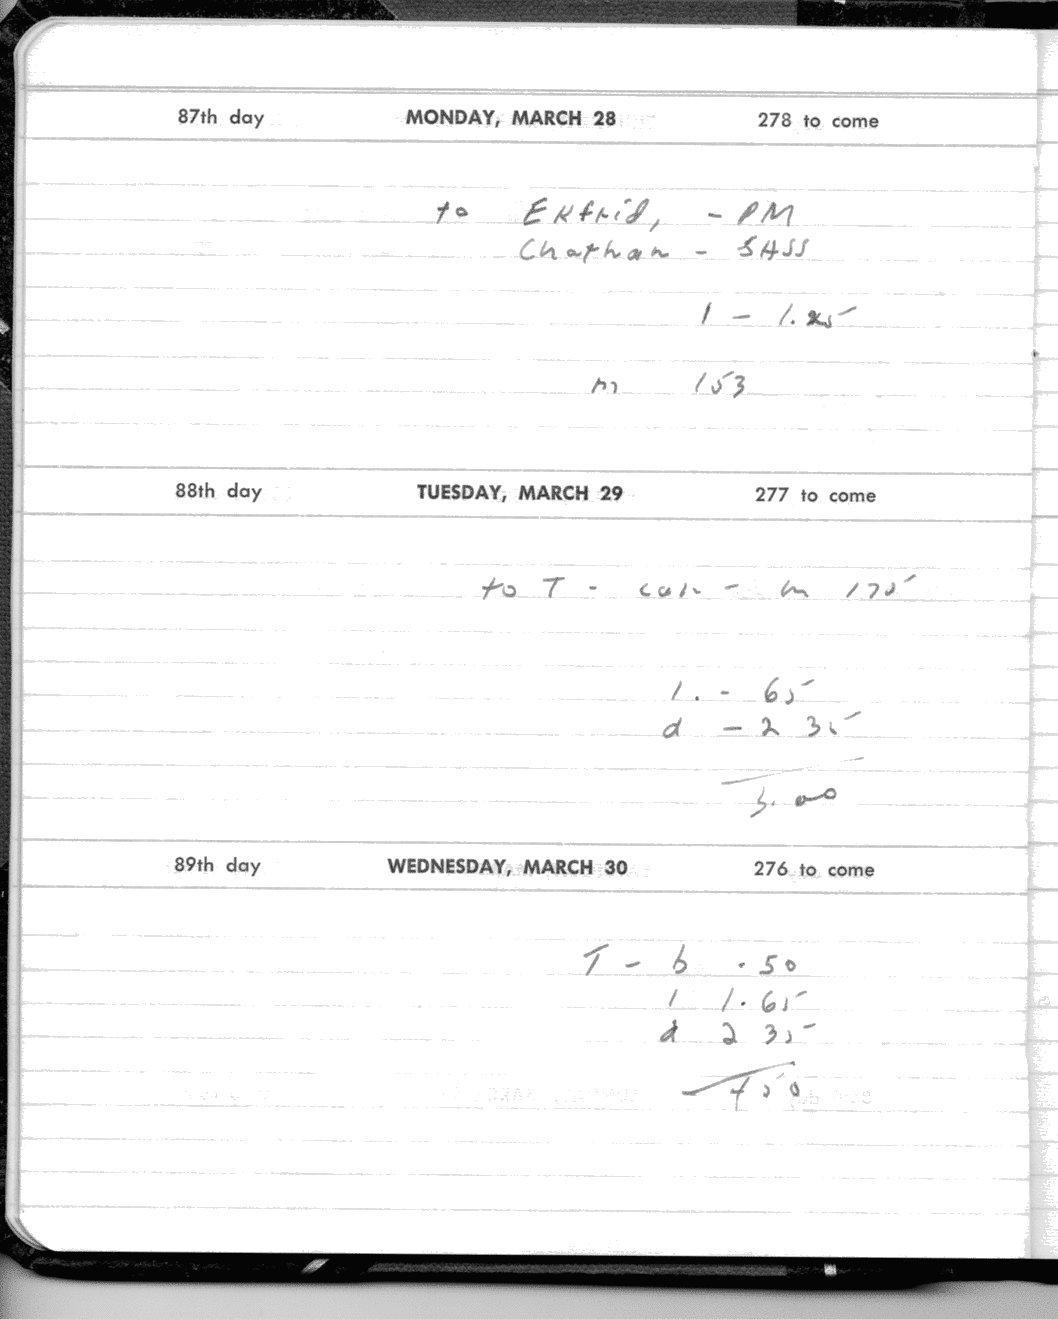 87th day MONDAY, MARCH 28 278 to come
to Ekfrid, - PM
Chatham - SASS
1 - 1.25
m 153
88th day TUESDAY, MARCH 29 277 to come
to T - - m 175
1. - 65
d - 2 35
3.00
89th day WEDNESDAY, MARCH 30 276 to come
T - b .50
1 1.65
d 2 35
4 50